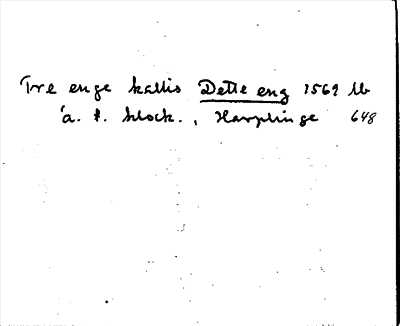 Tre enge kallis Dette eng 1569 lb
á. f. klock., Harplinge 648